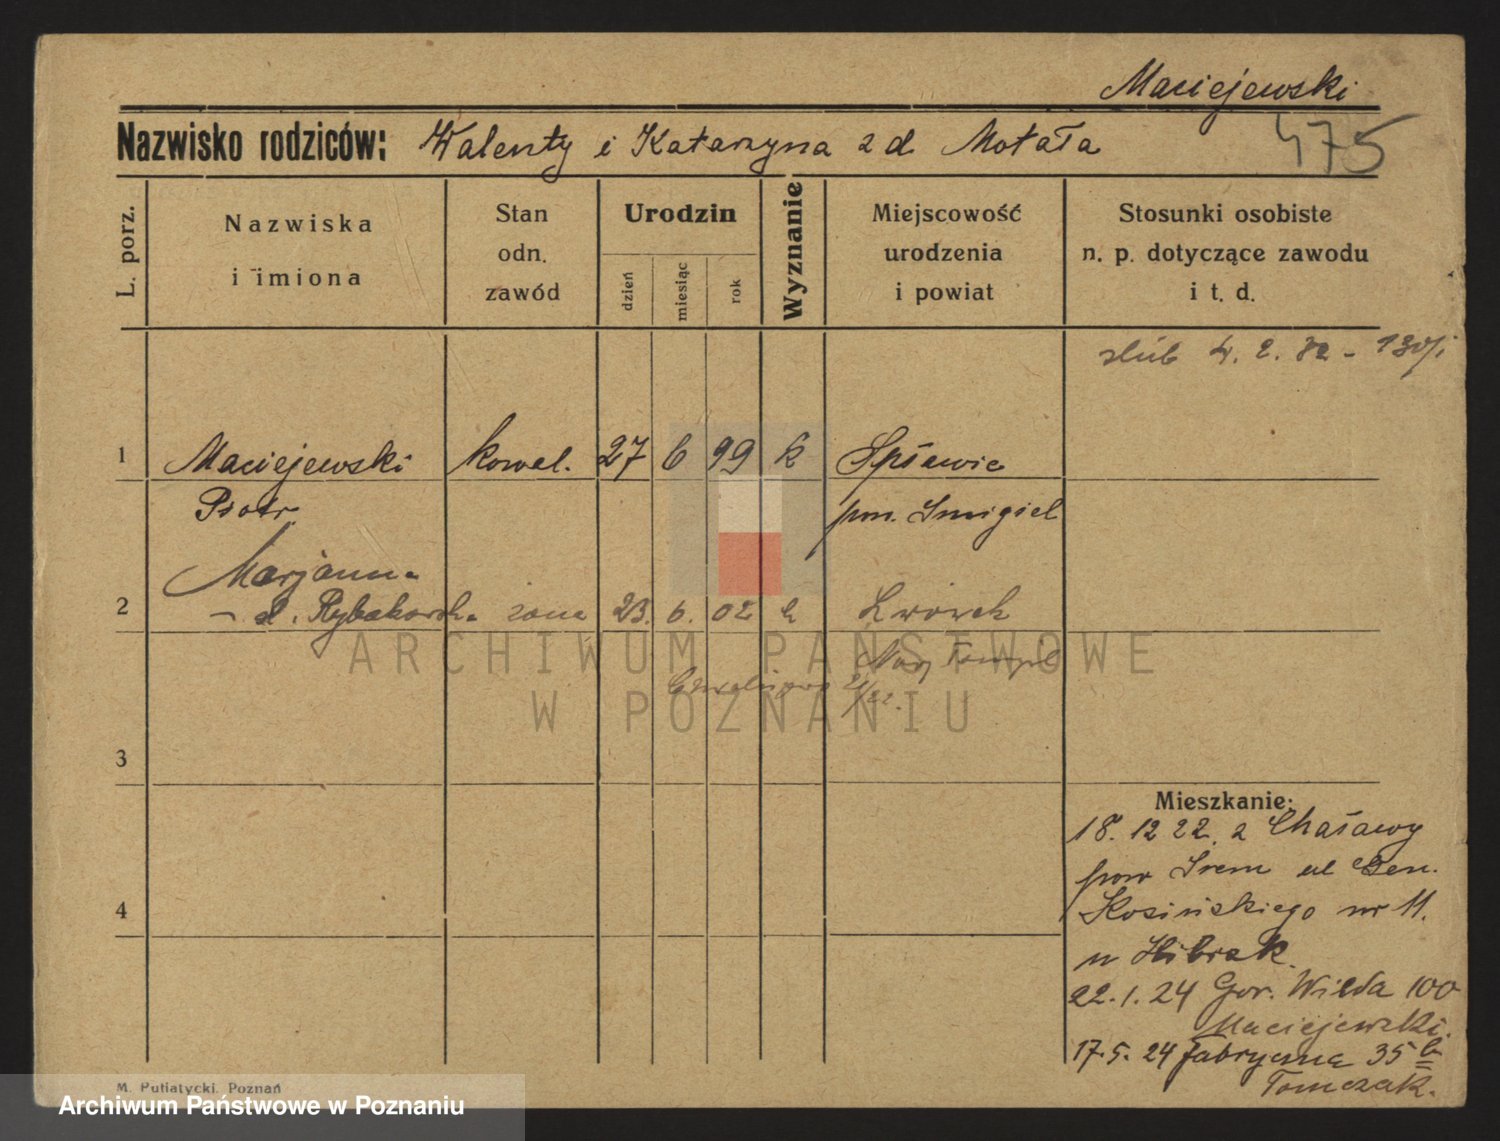 Maciejewski
Nazwisko rodziców: Walenty i Katarzyna z d Motała
475
L. porz.
Nazwiska
i imiona
Stan
odn.
zawód
Urodzin
dzień
miesiąc
rok
Wyznanie
Miejscowość
urodzenia
i powiat
Stosunki osobiste
n. p. dotyczące zawodu
i t. d.
ślub 4. 2. 22 -
1 Maciejewski kowal. 27 6 99 k
Piotr pow. Smigiel
Marjanna
2 d. Rybakowska żona 23. 6. 02 k Lwówek
Nowy Tomyśl
3
4
Mieszkanie:
18. 12 22. z Chaławy
pow Śrem ul Gen.
Kosińskiego nr 11.
u Hibrak.
22. 1. 24 Gor. Wilda 100
Maciejewski.
17. 5. 24 Fabryczna 35 b
Tomczak.
M. Putiatycki, Poznań
ARCHIWUM PAŃSTWOWE
W POZNANIU
Archiwum Państwowe w Poznaniu